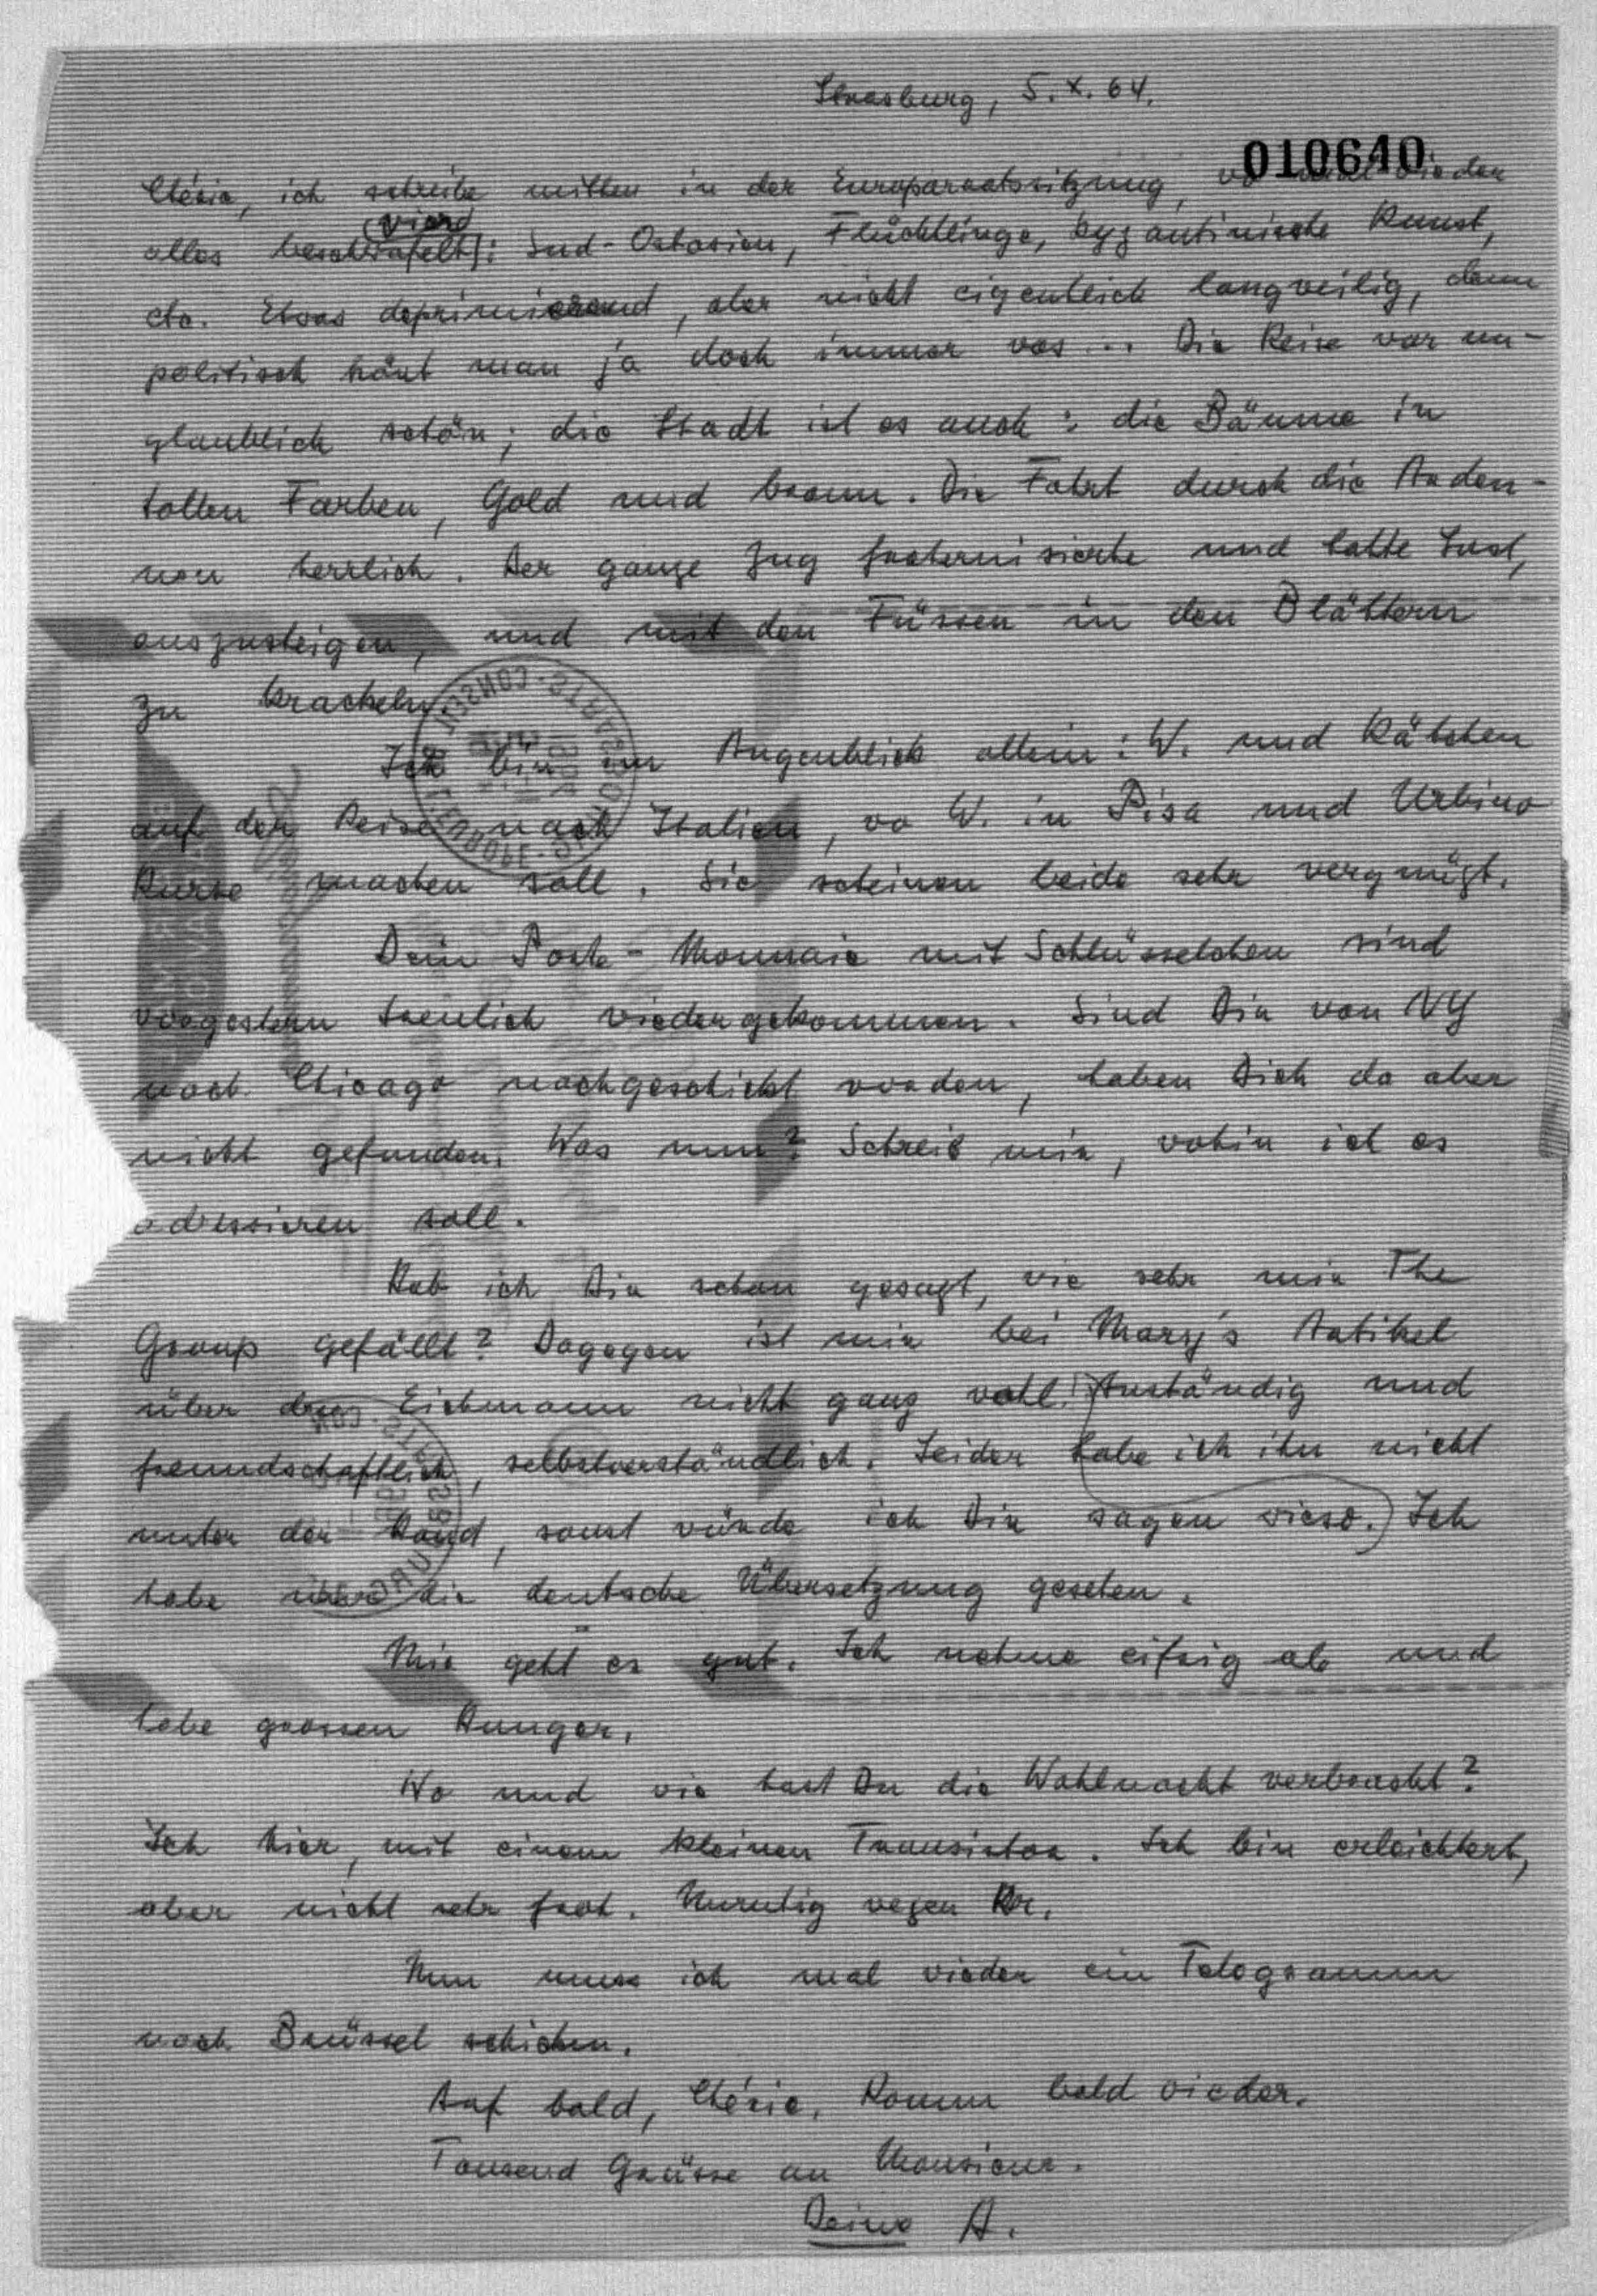 Strasburg, 5.X.64.
010640
Chérie, ich schreibe mitten in der Europaratssitzung, wo wieder
wird
alles beschwafelt: Süd-Ostasien, Flüchtlinge, byzantinische Kunst,
etc. Etwas deprimierend, aber nicht eigentlich langweilig, denn
politisch hört man ja doch immer was... Die Reise war un-
glaublich schön; die Stadt ist es auch: die Bäume in
tollen Farben, Gold und braun. Die Fahrt durch die Arden-
nen herrlich. Der ganze Zug fraternisierte und hatte Lust,
auszusteigen, und mit den Füssen in den Blättern
zu kracheln.
Ich bin im Augenblick allein: W. und Kätchen
auf der Reise nach Italien, wo W. in Pisa und Urbino
Kurse machen soll. Sie scheinen beide sehr vergnügt.
Dein Porte-Monnaie mit Schlüsselchen sind
vorgestern treulich wiedergekommen. Sind Dir von NY
nach Chicago nachgeschickt worden, haben Dich da aber
nicht gefunden. Was nun? Schreib mir, wohin ich es
adressieren soll.
Hab ich Dir schon gesagt, wie sehr mir The
Group gefällt? Dagegen ist mir bei Mary's Artikel
über den Eichmann nicht ganz wohl. (Anständig und
freundschaftlich, selbstverständlich. Leider habe ich ihn nicht
unter der Hand, sonst würde ich Dir sagen wieso.) Ich
habe nur die deutsche Übersetzung gesehen.
Mir geht es gut. Ich nehme eifrig ab und
habe grossen Hunger.
Wo und wie hast Du die Wahlnacht verbracht?
Ich hier, mit einem kleinen Transistor. Ich bin erleichtert,
aber nicht sehr froh. Unruhig wegen Hr.
Nun muss ich mal wieder ein Telegramm
nach Brüssel schicken.
Auf bald, Chérie. Komm bald wieder.
Tausend Grüsse an Monsieur.
Deine A.